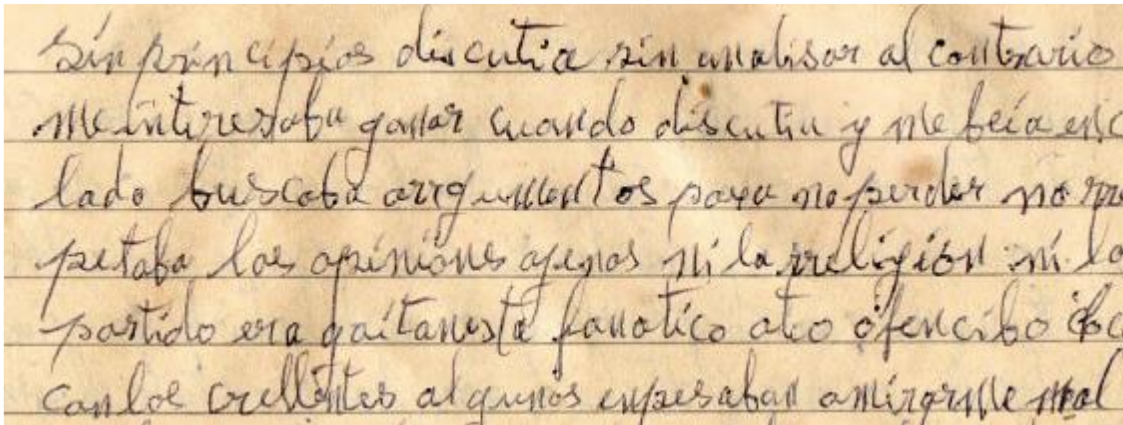 sin principios discutia sin analisar al contrario
me interesaba ganar cuando discutia y me beía enc
lado buscaba arrgumentos para no perder no rre
petaba las opiniones agenas ni la rreligión ni lo
partido era gaitanista fanatico ateo ofencibo
con los crellentes algunos enpesaban a mirarme mal